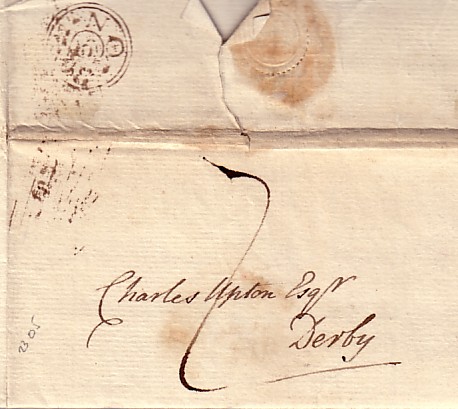 7
Charles Upton Esqr
Derby
2305